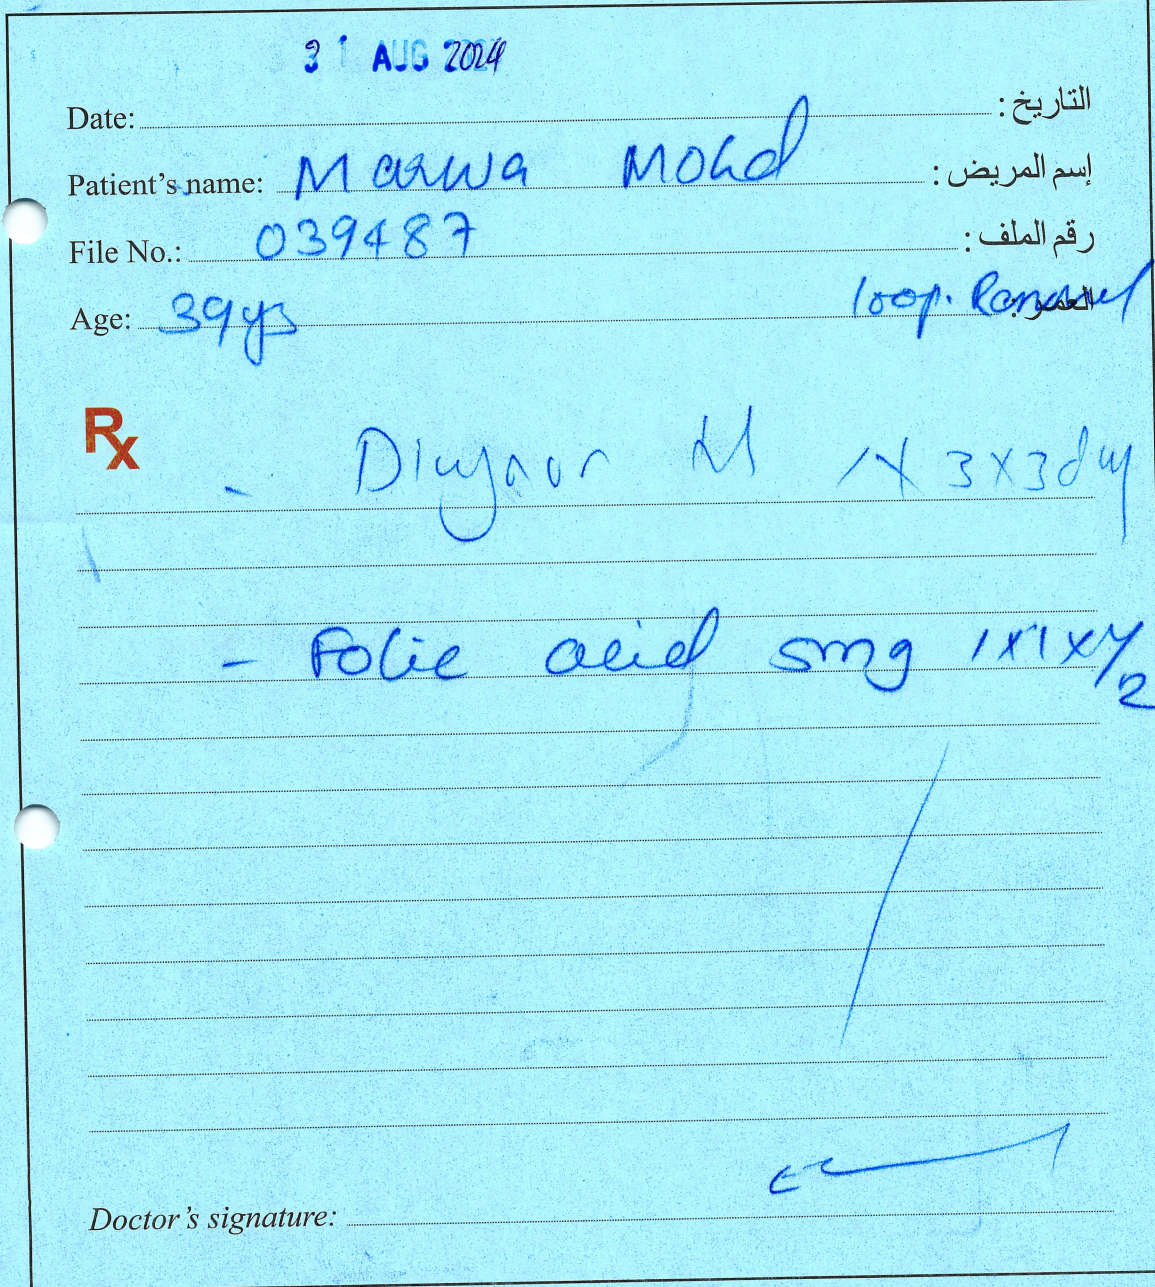 31 AUG 2024
Date: التاريخ :
Patient's name: Marwa Mohd إسم المريض :
File No.: 039487 رقم الملف :
Age: 39ys loop. Removal العمر :
Rx
- M 1x3x3day
- Folic acid 5mg 1x1x
Doctor's signature: